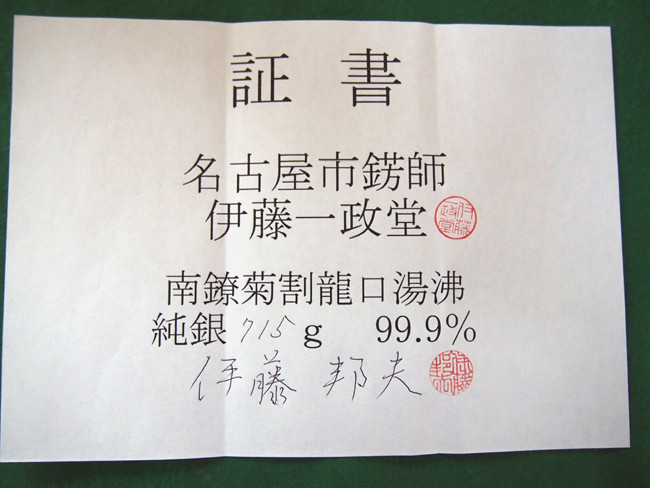 証書
名古屋市錺師
伊藤一政堂
伊藤政堂
南鐐菊割龍口湯沸
純銀715g 99.9%
伊藤邦夫